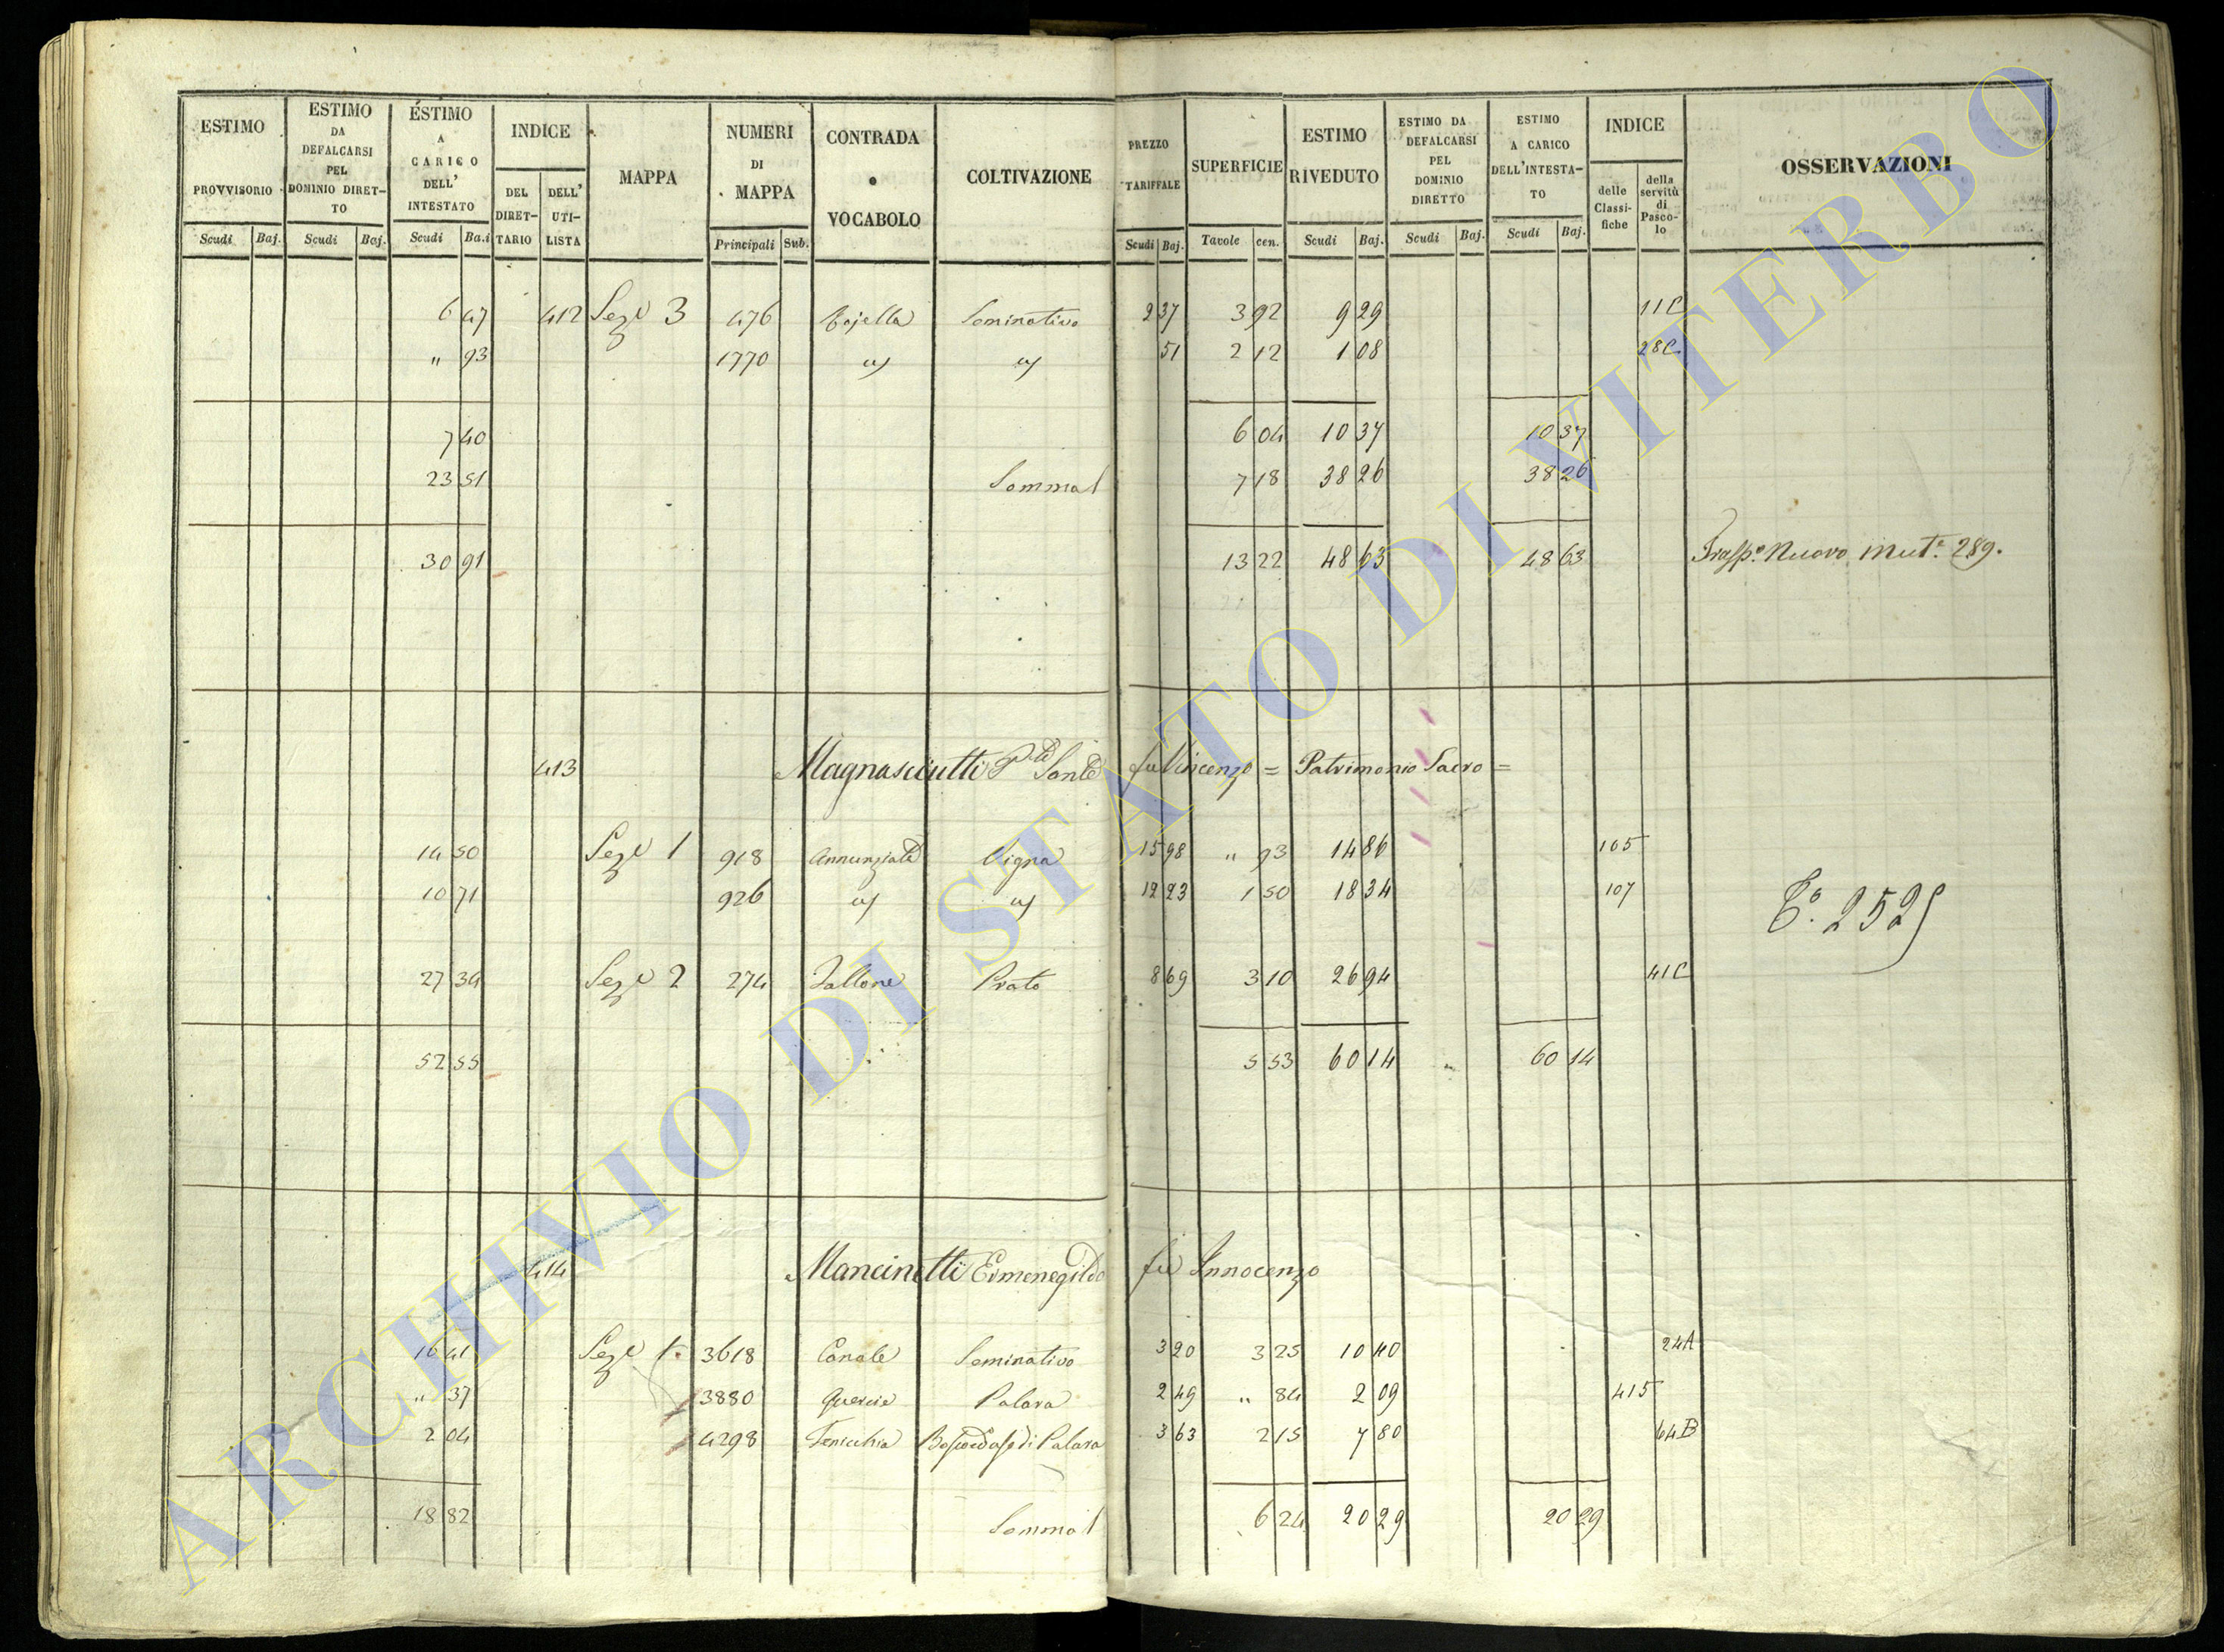 ESTIMO PROVVISORIO Scudi Baj.
ESTIMO DA DEFALCARSI PEL DOMINIO DIRETTO Scudi Baj.
ESTIMO A CARICO DELL' INTESTATO Scudi Baj.
INDICE DEL DIRETTARIO DELL' UTILISTA
MAPPA
NUMERI DI MAPPA Principali Sub.
CONTRADA o VOCABOLO
COLTIVAZIONE
PREZZO TARIFFALE Scudi Baj.
SUPERFICIE Tavole cen.
ESTIMO RIVEDUTO Scudi Baj.
ESTIMO DA DEFALCARSI PEL DOMINIO DIRETTO Scudi Baj.
ESTIMO A CARICO DELL'INTESTATO Scudi Baj.
INDICE delle Classifiche della servitù di Pascolo
OSSERVAZIONI
6 47 412 Seze 3 476 Seminativo 2 37 3 92 9 29 11C
" 93 1770 51 2 12 1 08 28C
7 40 6 04 10 37 10 37
23 51 7 18 38 26 38 26
30 91 13 22 48 63 48 63 Trasp.o Nuovo Mut.e 289.
413 Magnasciutti Sante fu Vincenzo = Patrimonio Sacro =
14 50 Seze 1 918 Annunziata Vigna 15 98 " 93 14 86 105
10 71 926 12 23 1 50 18 34 107
27 34 Seze 2 274 Vallone Prato 8 69 3 10 26 94 41C
52 55 5 53 60 14 " 60 14
414 Mancinetti Ermenegildo fu Innocenzo
16 41 Seze 1 3618 Canale Seminativo 3 20 3 25 10 40 24A
" 37 3880 Quercie Palara 2 49 " 84 2 09 415
2 04 4298 di Palara 3 63 2 15 7 80 64B
18 82 6 24 20 29 20 29
ARCHIVIO DI STATO DI VITERBO